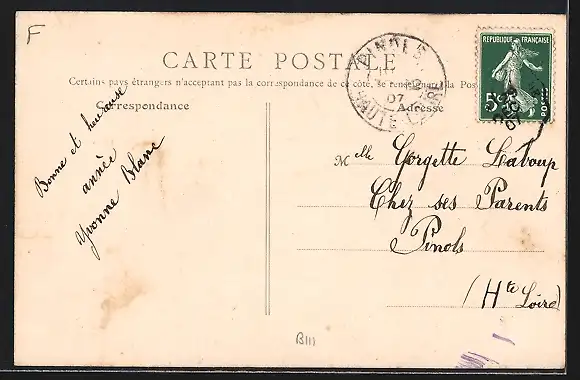 F
CARTE POSTALE
Certains pays étrangers n'acceptant pas la correspondance de ce côté, se renseigner à la Pos
Correspondance
Adresse
PINOLS
07
HAUTE LOIRE
REPUBLIQUE FRANÇAISE
5c
POSTES
Bonne et heureuse
année
Yvonne Blanc
Melle Gorgette Laboup
Chez ses Parents
Pinols
(Hte Loire)
BIII